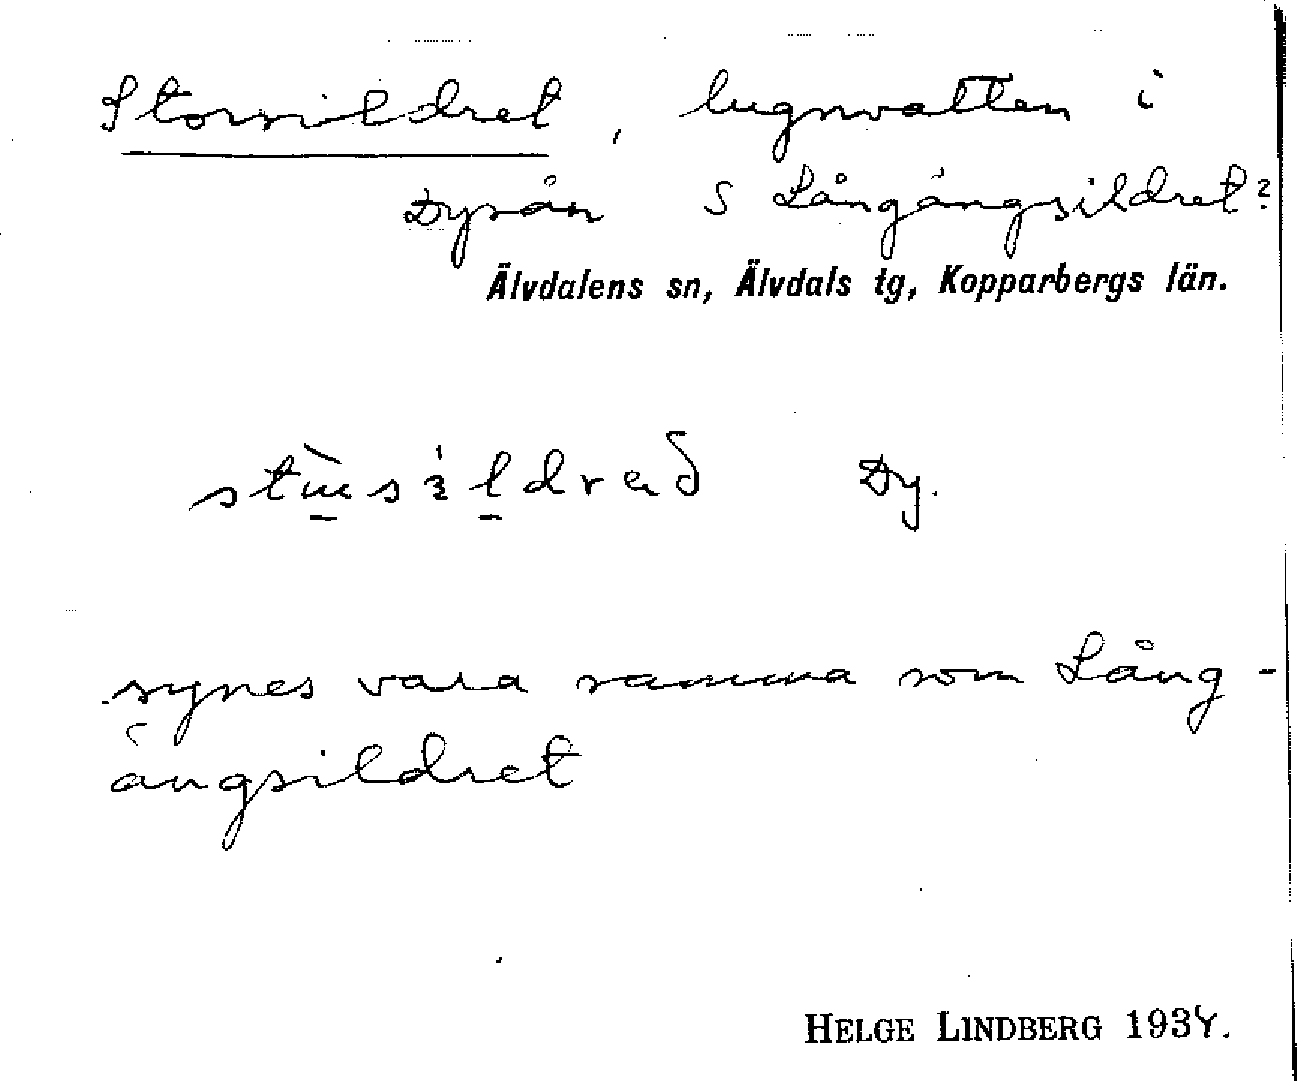 Storsildret, lugnvatten i
Dysån S Långängsildret?
Älvdalens sn, Älvdals tg, Kopparbergs län.
Dy.
synes vara samma som Lång-
ängsildret
HELGE LINDBERG 1934.